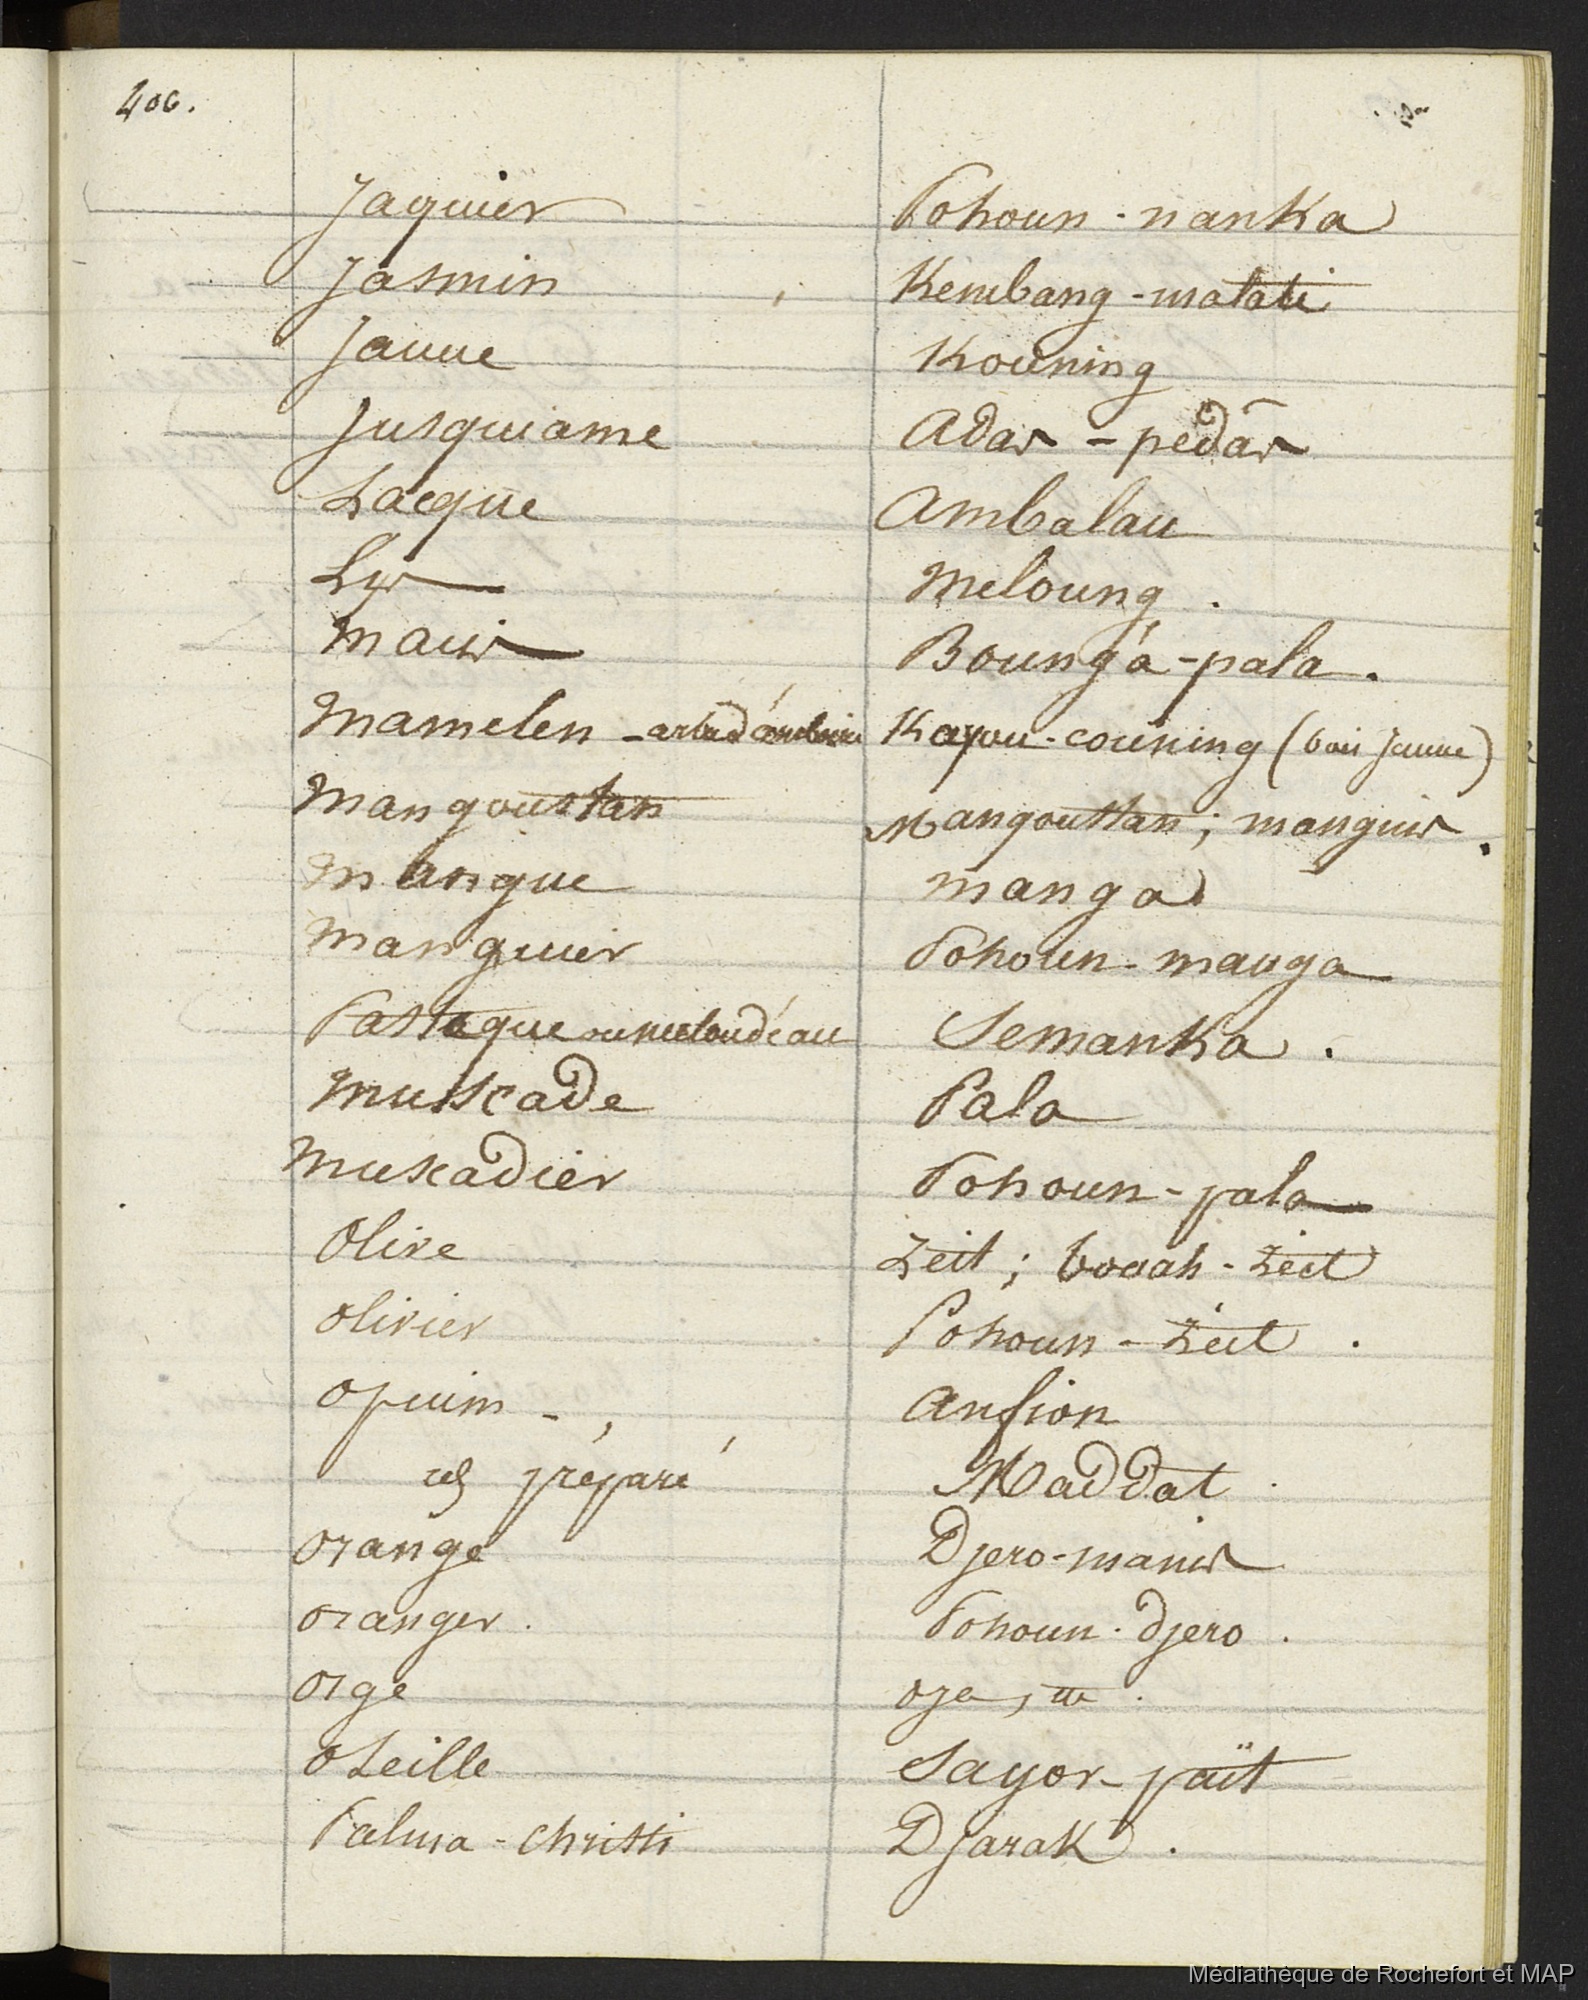 406.
Jaquier Pohoun - nanka
Jasmin Kembang - malati
Jaune Kouning
Jusquiame Adas - pédas
Lacque Ambalau
Lys Meloung .
Macis Boung'a - pala .
Mamelen - arbre Kayou - couning (bois jaune)
Mangoustan Mangoustan ; manguis .
Mangue manga
Manguier Pohoun - manga
Pasteque ou melon d'eau Semanka .
Muscade Pala
Muscadier Pohoun - pala
Olive Zeit ; bouah - zeit
olivier Pohoun - zeit .
opium - , Anfion
id préparé Maddat .
orange Djero - manis
oranger . Pohoun - djero .
orge
oseille Sayor - paït
Palma - Christi Djarak .
Médiathèque de Rochefort et MAP